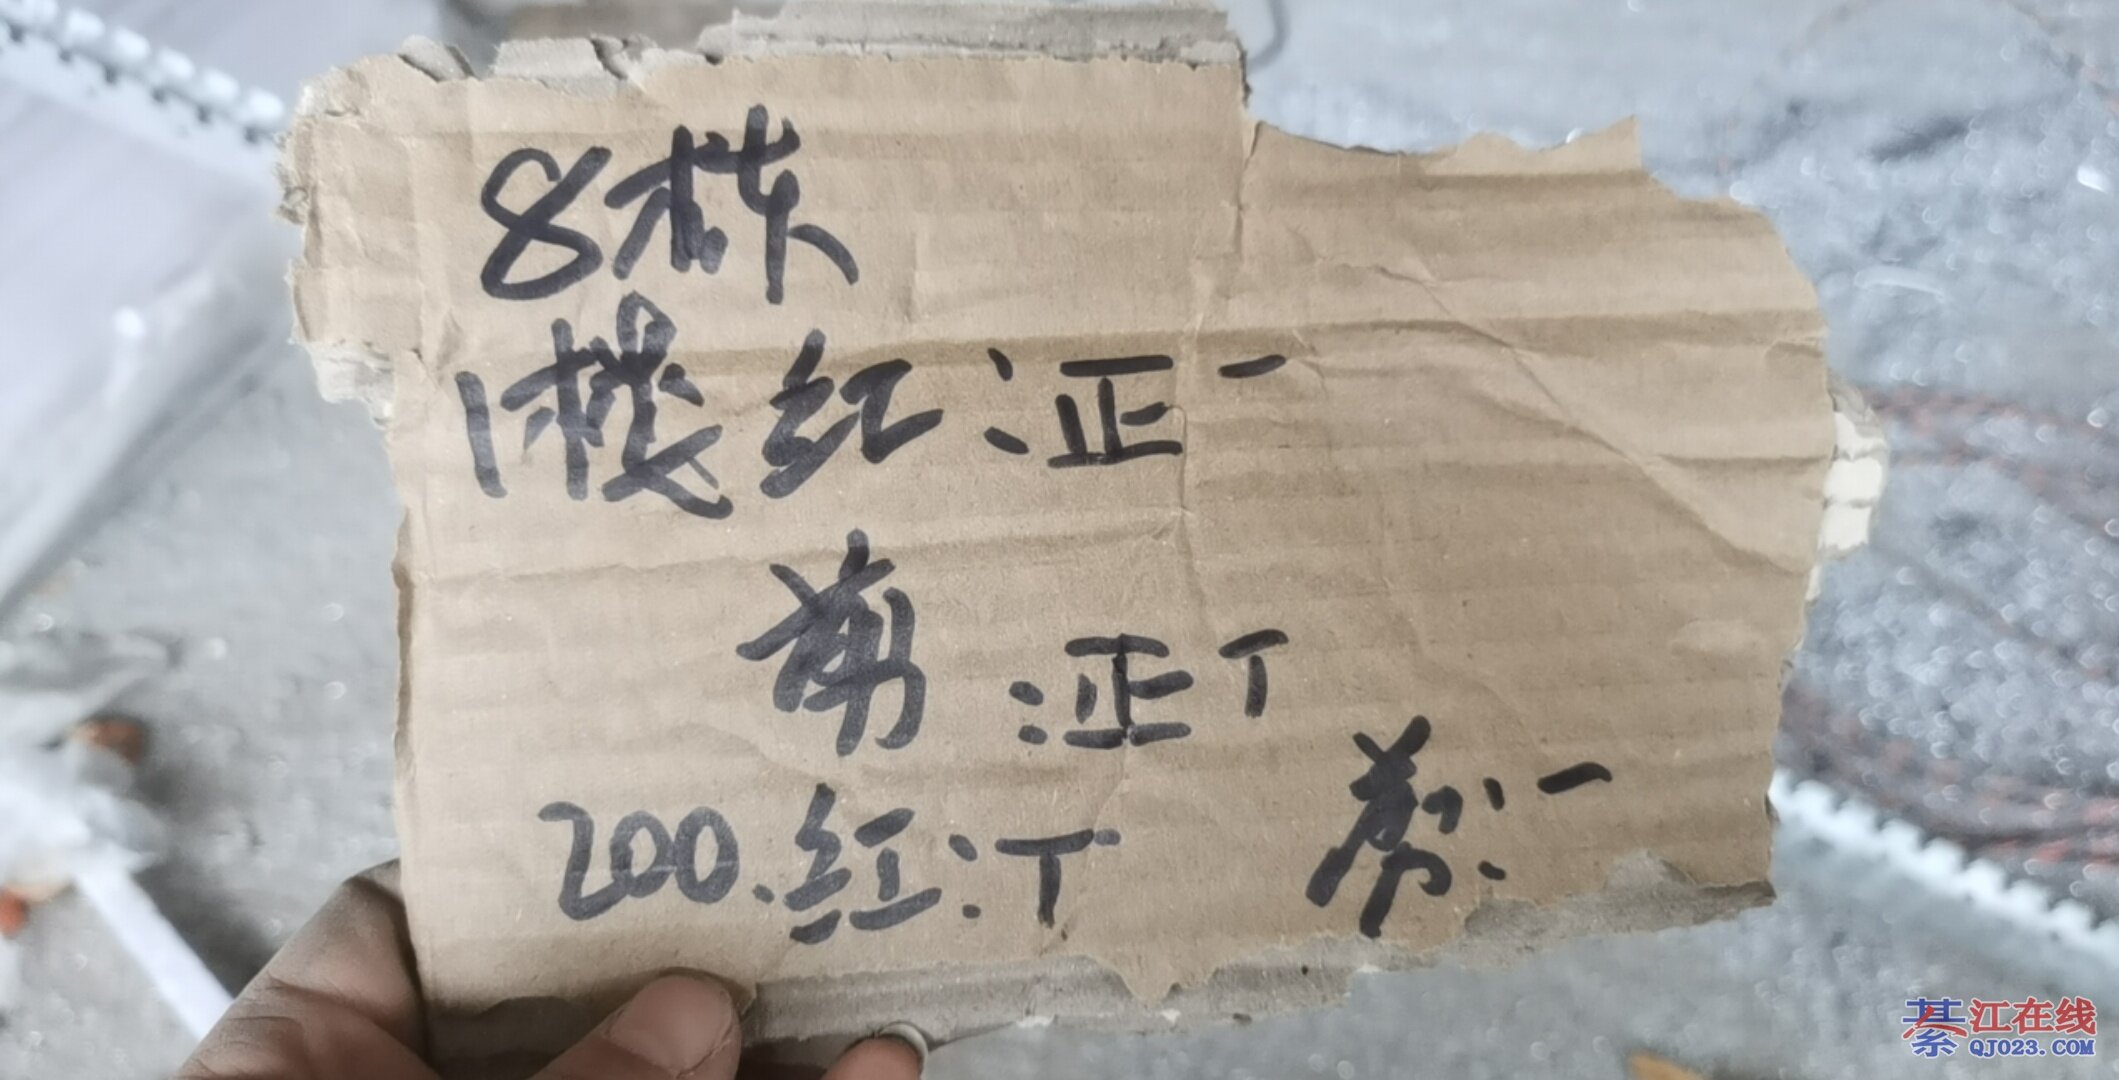 8栋
1楼红:正一
剪:正丅
200.红:丅 剪:一
綦江在线
QJ023.COM